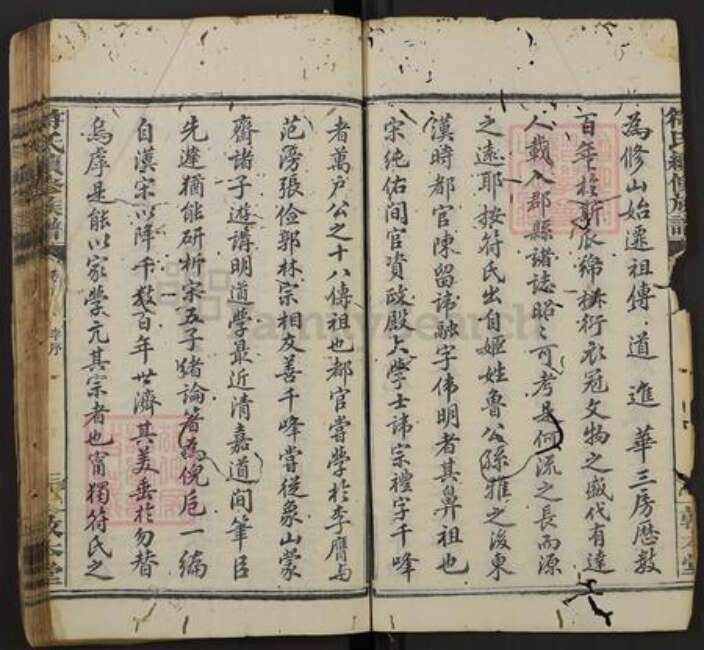 為修山始遷祖傳道進華三房歷數
百年於斯瓜綿椒衍衣冠文物之盛代有達
人載入郡縣諸誌昭々可考是何流之長而源
之遠耶按符氏出自姬姓魯公孫雅之後東
漢時都官陳留諱融字偉明者其鼻祖也
宋純佑間官資政殿大學士諱宗禮字千峰
者萬戶公之十八傳祖也都官嘗學於李膺与
范滂張儉郭林宗相友善千峰嘗從象山蒙
齋諸子遊講明道學最近清嘉道間筆臣
先達猶能研析宋五子緒論著為倪卮一編
自漢宋以降千數百年世濟其美垂於勿替
烏虖是能以家學亢其宗者也甯獨符氏之
符氏續修族譜
李序
敦本堂
FamilySearch